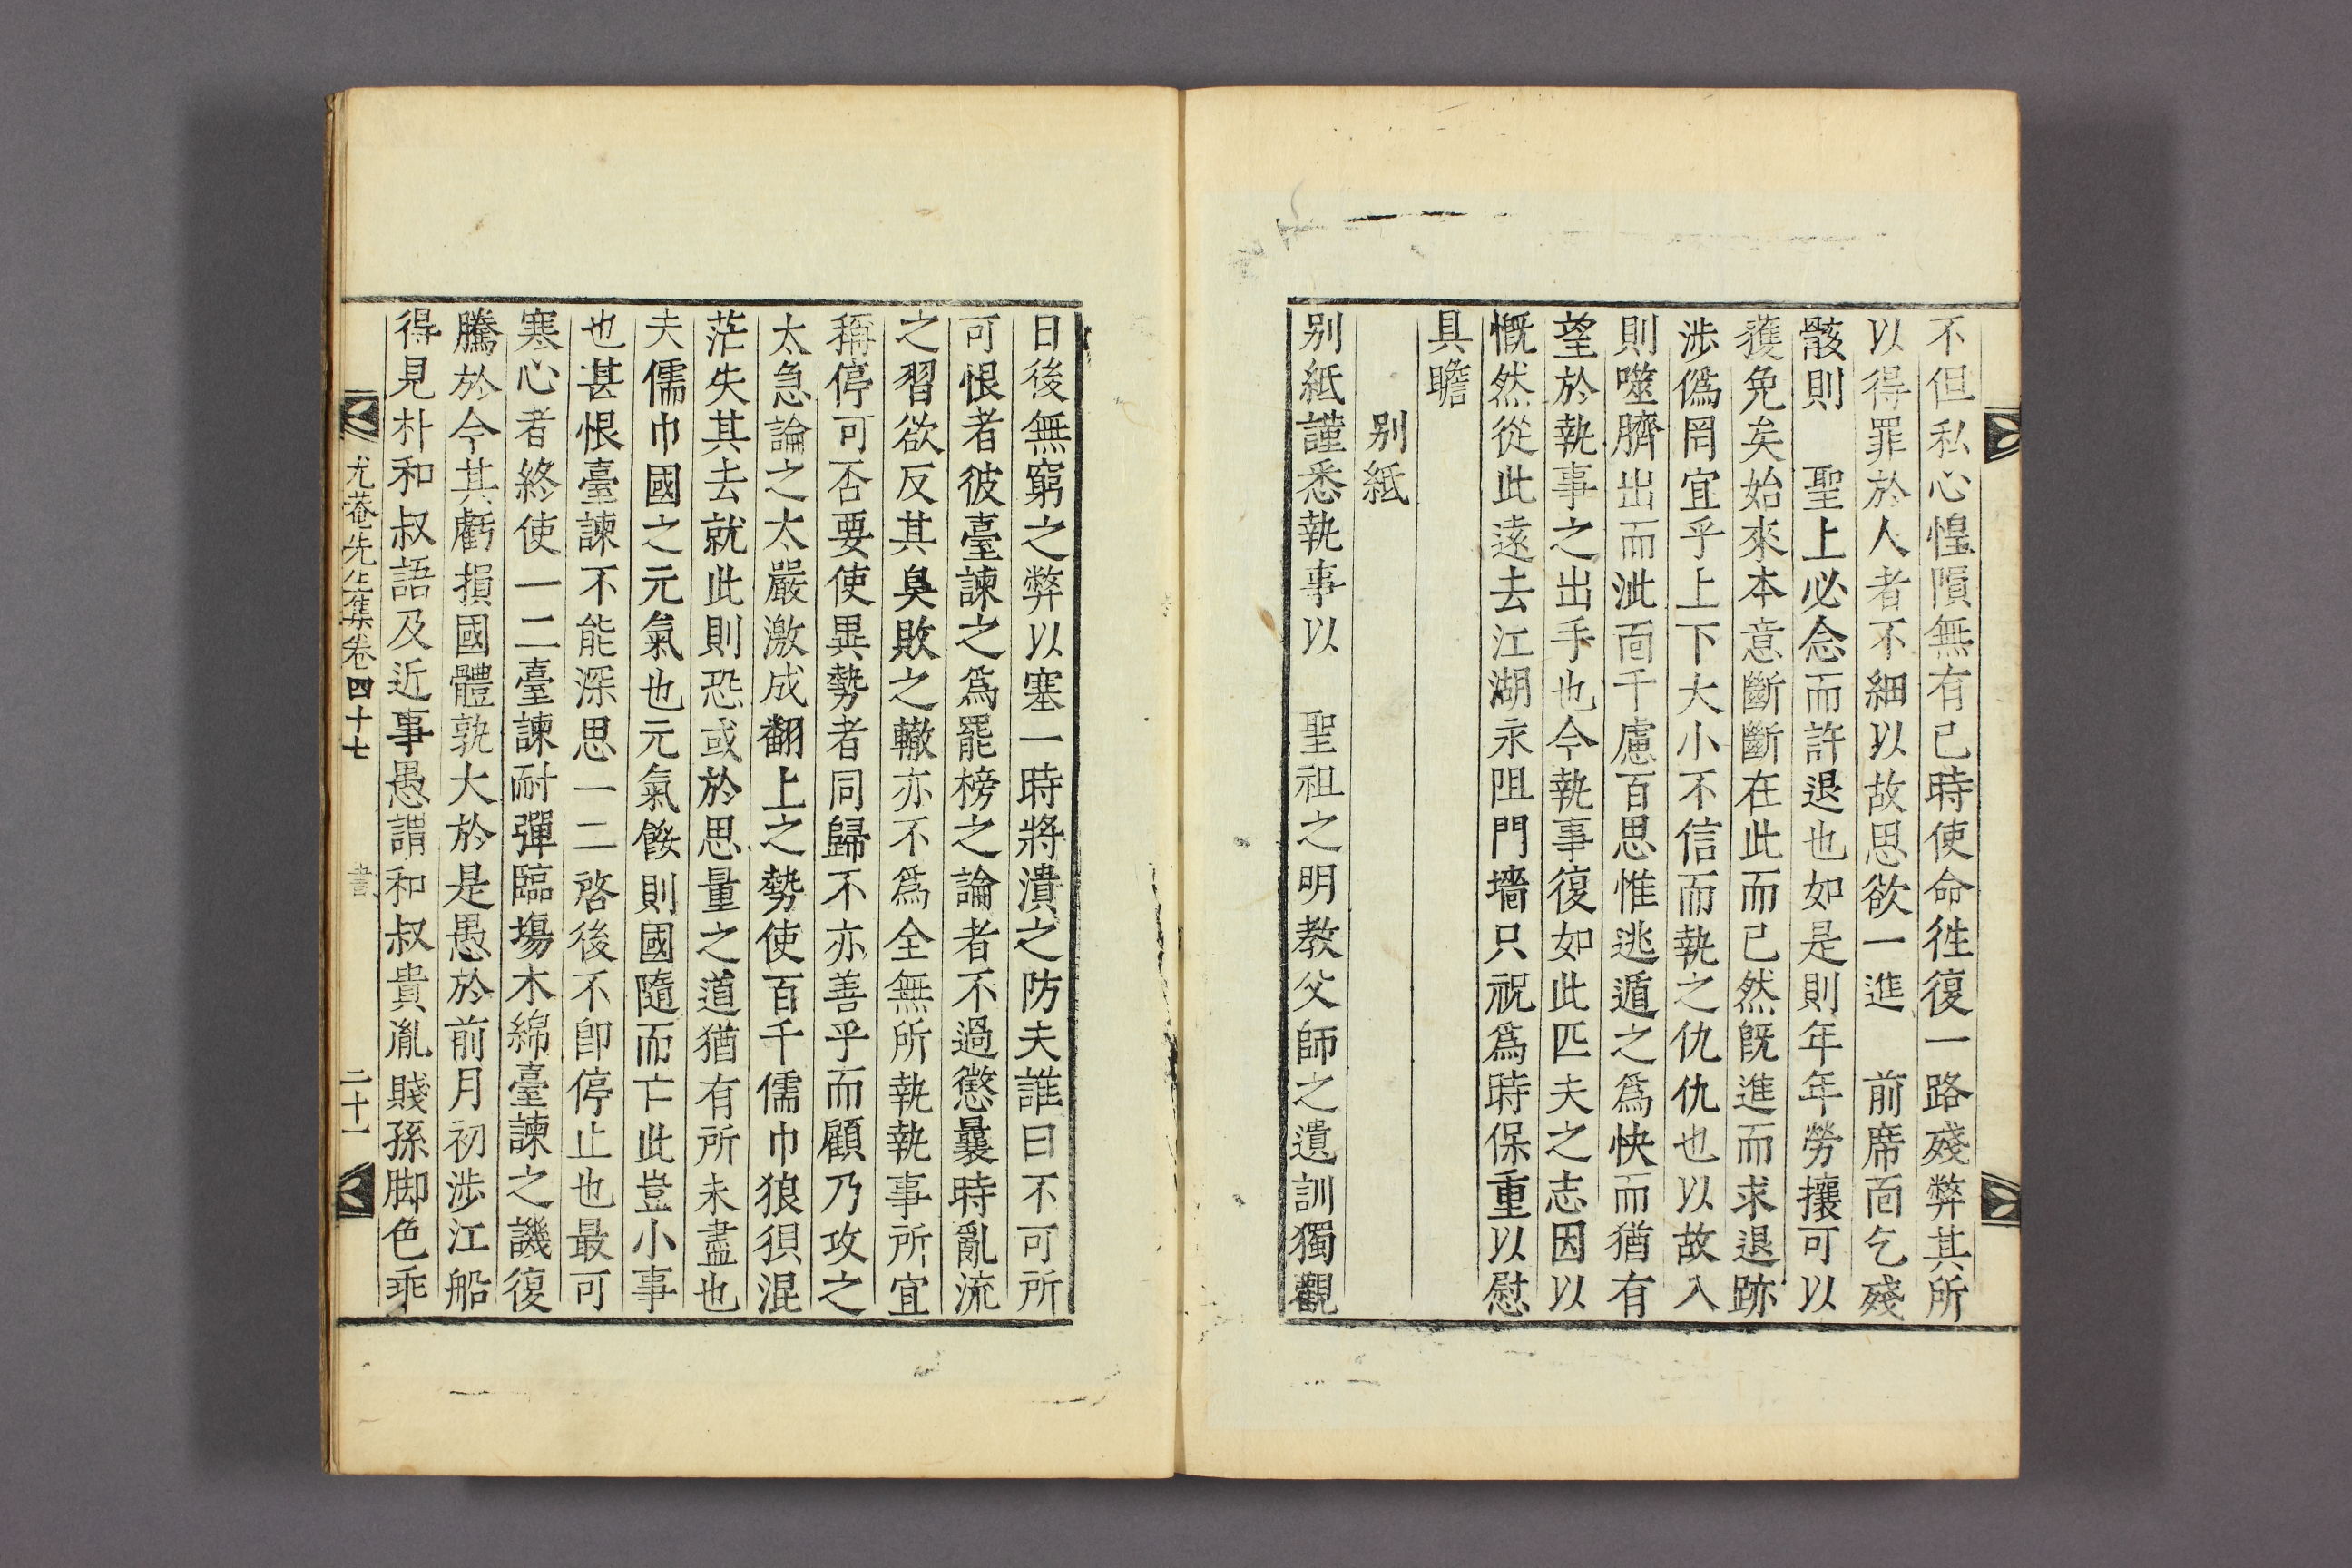 不但私心惶隕無有已時使命徃復一路殘弊其所
以得罪於人者不細以故思欲一進 前席面乞殘
骸則 聖上必念而許退也如是則年年勞攘可以
獲免矣始來本意斷斷在此而已然旣進而求退跡
涉僞罔宜乎上下大小不信而執之仇仇也以故入
則噬臍出而泚面千慮百思惟逃遁之爲快而猶有
望於執事之出手也今執事復如此匹夫之志因以
慨然從此遠去江湖永阻門墻只祝爲時保重以慰
具瞻
別紙
別紙謹悉執事以 聖祖之明教父師之遺訓獨觀
日後無窮之弊以塞一時將潰之防夫誰曰不可所
可恨者彼臺諫之爲罷榜之論者不過懲曩時亂流
之習欲反其臭敗之轍亦不爲全無所執執事所宜
稱停可否要使異勢者同歸不亦善乎而顧乃攻之
太急論之太嚴激成翻上之勢使百千儒巾狼狽混
茫失其去就此則恐或於思量之道猶有所未盡也
夫儒巾國之元氣也元氣餒則國隨而亡此豈小事
也甚恨臺諫不能深思一二啓後不卽停止也最可
寒心者終使一二臺諫耐彈臨場木綿臺諫之譏復
騰於今其虧損國體孰大於是愚於前月初涉江船
得見朴和叔語及近事愚謂和叔貴胤賤孫脚色乖
尤菴先生集卷四十七 書 二十一